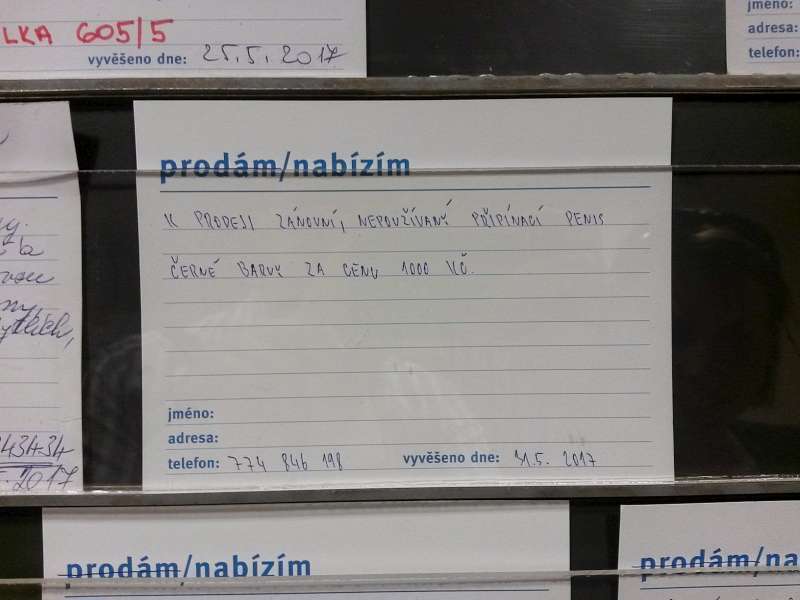 LKA 605/5
vyvěšeno dne: 25.5. 2017
jméno:
adresa:
telefon:
prodám/nabízím
K PRODEJI ZÁNOVNÍ, NEPOUŽÍVANÝ PŘIPÍNACÍ PENIS
ČERNÉ BARVY ZA CENU 1000 KČ.
jméno:
adresa:
telefon: 774 846 198 vyvěšeno dne: 31.5. 2017
2017
prodám/nabízím
prodám/na